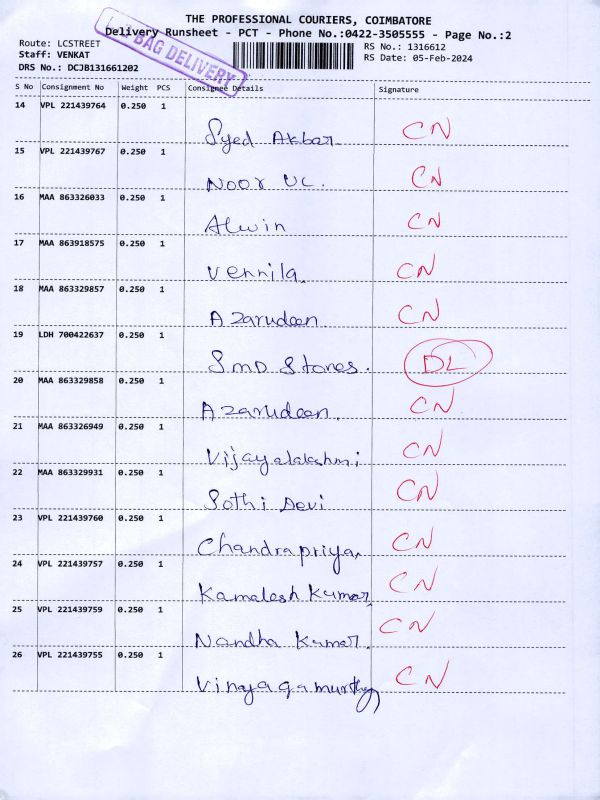 THE PROFESSIONAL COURIERS, COIMBATORE
Delivery Runsheet - PCT - Phone No.:0422-3505555 - Page No.:2
BAG DELIVERY
Route: LCSTREET
RS No.: 1316612
Staff: VENKAT
RS Date: 05-Feb-2024
DRS No.: DCJB131661202
S No Consignment No Weight PCS Consignee Details Signature
14 VPL 221439764 0.250 1
Syed Akbar CN
15 VPL 221439767 0.250 1
Noor UC. CN
16 MAA 863326033 0.250 1
Alwin CN
17 MAA 863918575 0.250 1
Vennila. CN
18 MAA 863329857 0.250 1
Azarudeen CN
19 LDH 700422637 0.250 1
SMD Stones. DL
20 MAA 863329858 0.250 1
Azarudeen. CN
21 MAA 863326949 0.250 1
Vijayalakshmi CN
22 MAA 863329931 0.250 1
Sothi Devi CN
23 VPL 221439760 0.250 1
Chandrapriya. CN
24 VPL 221439757 0.250 1
Kamalesh Kumar CN
25 VPL 221439759 0.250 1
Nandha Kumar. CN
26 VPL 221439755 0.250 1
Vinayagamurthy CN